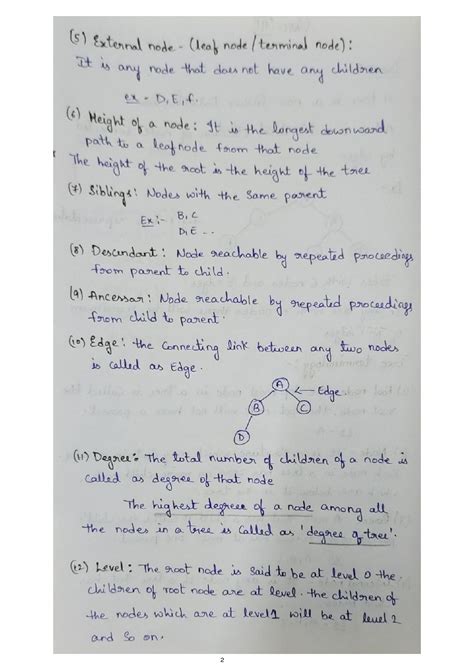 (5) External node - (leaf node / terminal node):
It is any node that does not have any children
ex - D, E, f.
(6) Height of a node: It is the longest downward
path to a leafnode from that node
The height of the root is the height of the tree
(7) Siblings: Nodes with the same parent
Ex:- B, C
D, E - -
(8) Descendant: Node reachable by repeated proceedings
from parent to child.
(9) Ancessar: Node reachable by repeated proceedings
from child to parent.
(10) Edge: the connecting link between any two nodes
is called as Edge.
A
Edge.
B
C
D
(11) Degree: The total number of children of a node is
called as degree of that node
The highest degree of a node among all
the nodes in a tree is called as 'degree of tree'.
(12) Level: The root node is said to be at level 0 the
children of root node are at level. the children of
the nodes which are at level 1 will be at level 2
and so on.
2